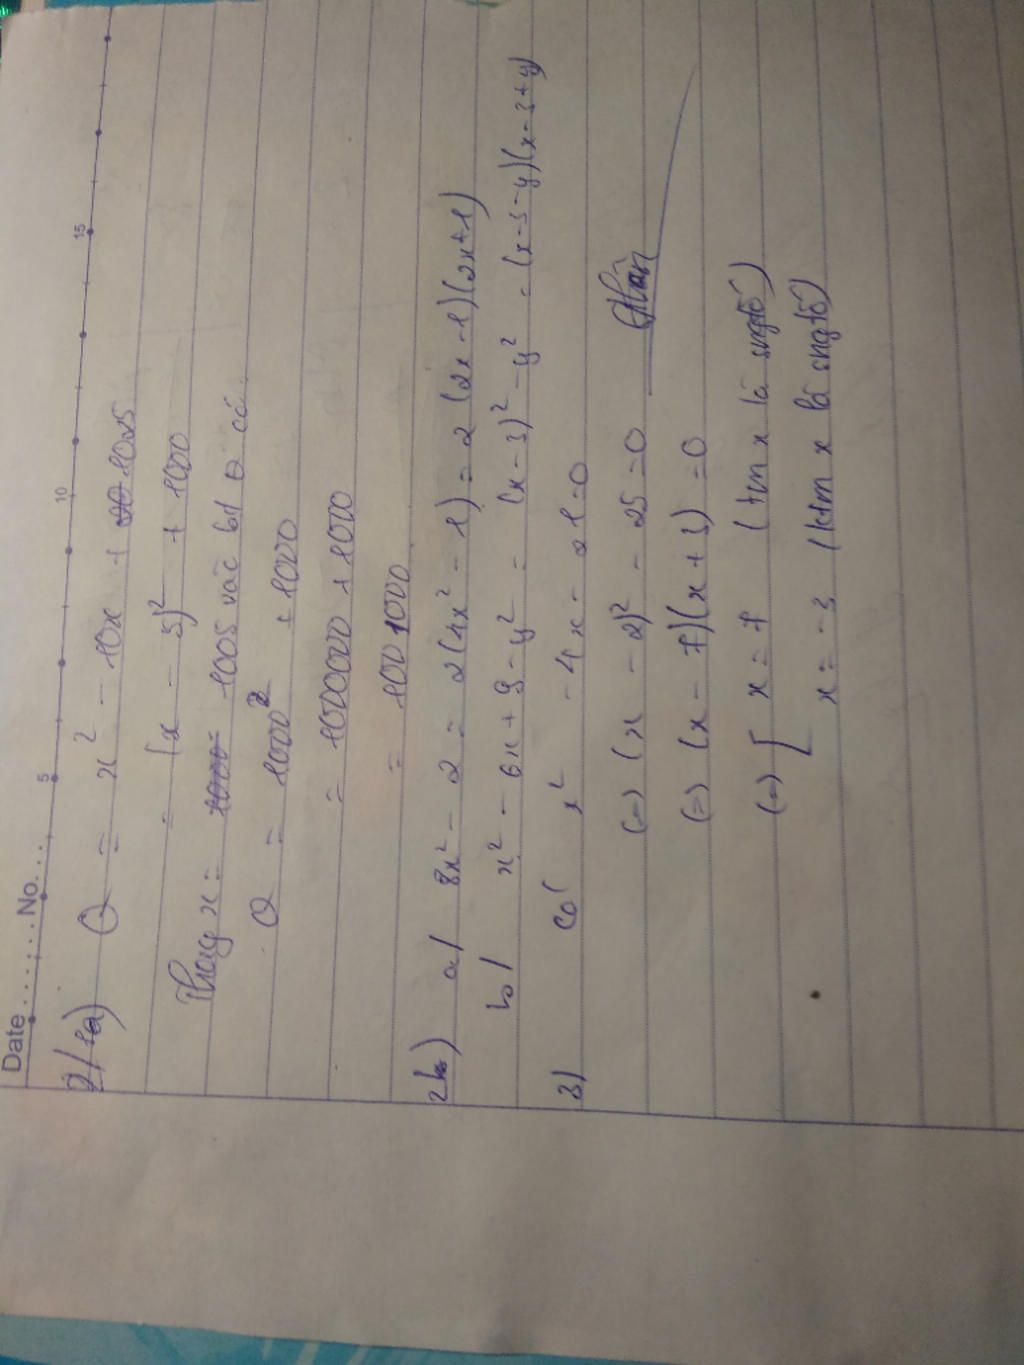 Date ........ No. ...
5 10 15
2/1a) Q = x² - 10x + 1025
= (x - 5)² + 1000
Thay x = 1005 vào bt Q có
Q = 1000² + 1000
= 1000000 + 1000
= 1001000
2b) a/ 8x² - 2 = 2(4x² - 1) = 2(2x - 1)(2x+1)
b/ x² - 6x + 9 - y² = (x - 3)² - y² = (x - 3 - y)(x - 3 + y)
3) Có x² - 4x - 21 = 0
(=) (x - 2)² - 25 = 0
(=) (x - 7)(x + 3) = 0
(=) [ x = 7 (tm x là sngtố)
x = -3 (ktm x là sngtố)